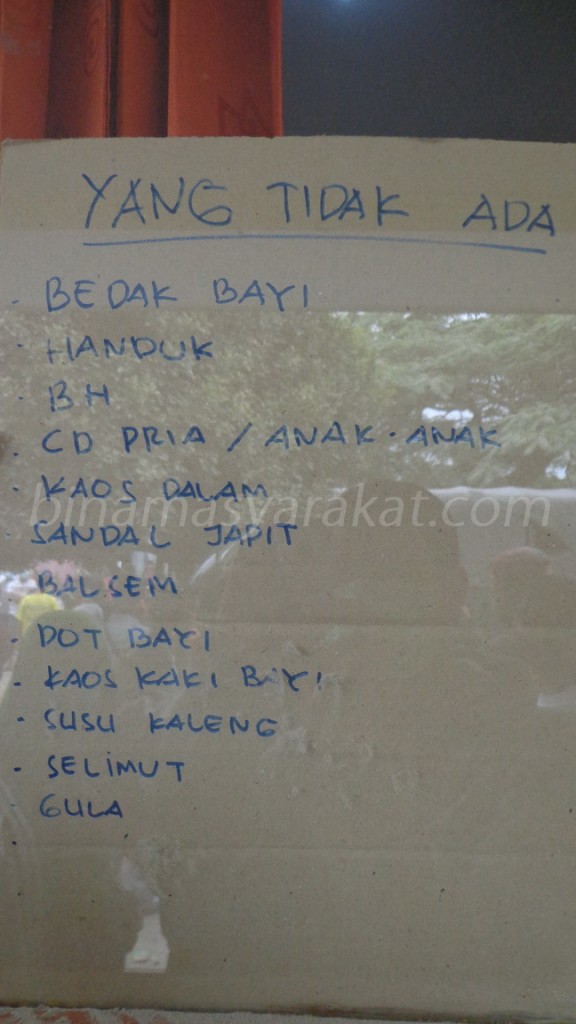 YANG TIDAK ADA
· BEDAK BAYI
· HANDUK
· BH
· CD PRIA / ANAK-ANAK
· KAOS DALAM
binamasyarakat.com
· SANDAL JAPIT
· BALSEM
· DOT BAYI
· KAOS KAKI BAYI
· SUSU KALENG
· SELIMUT
· GULA